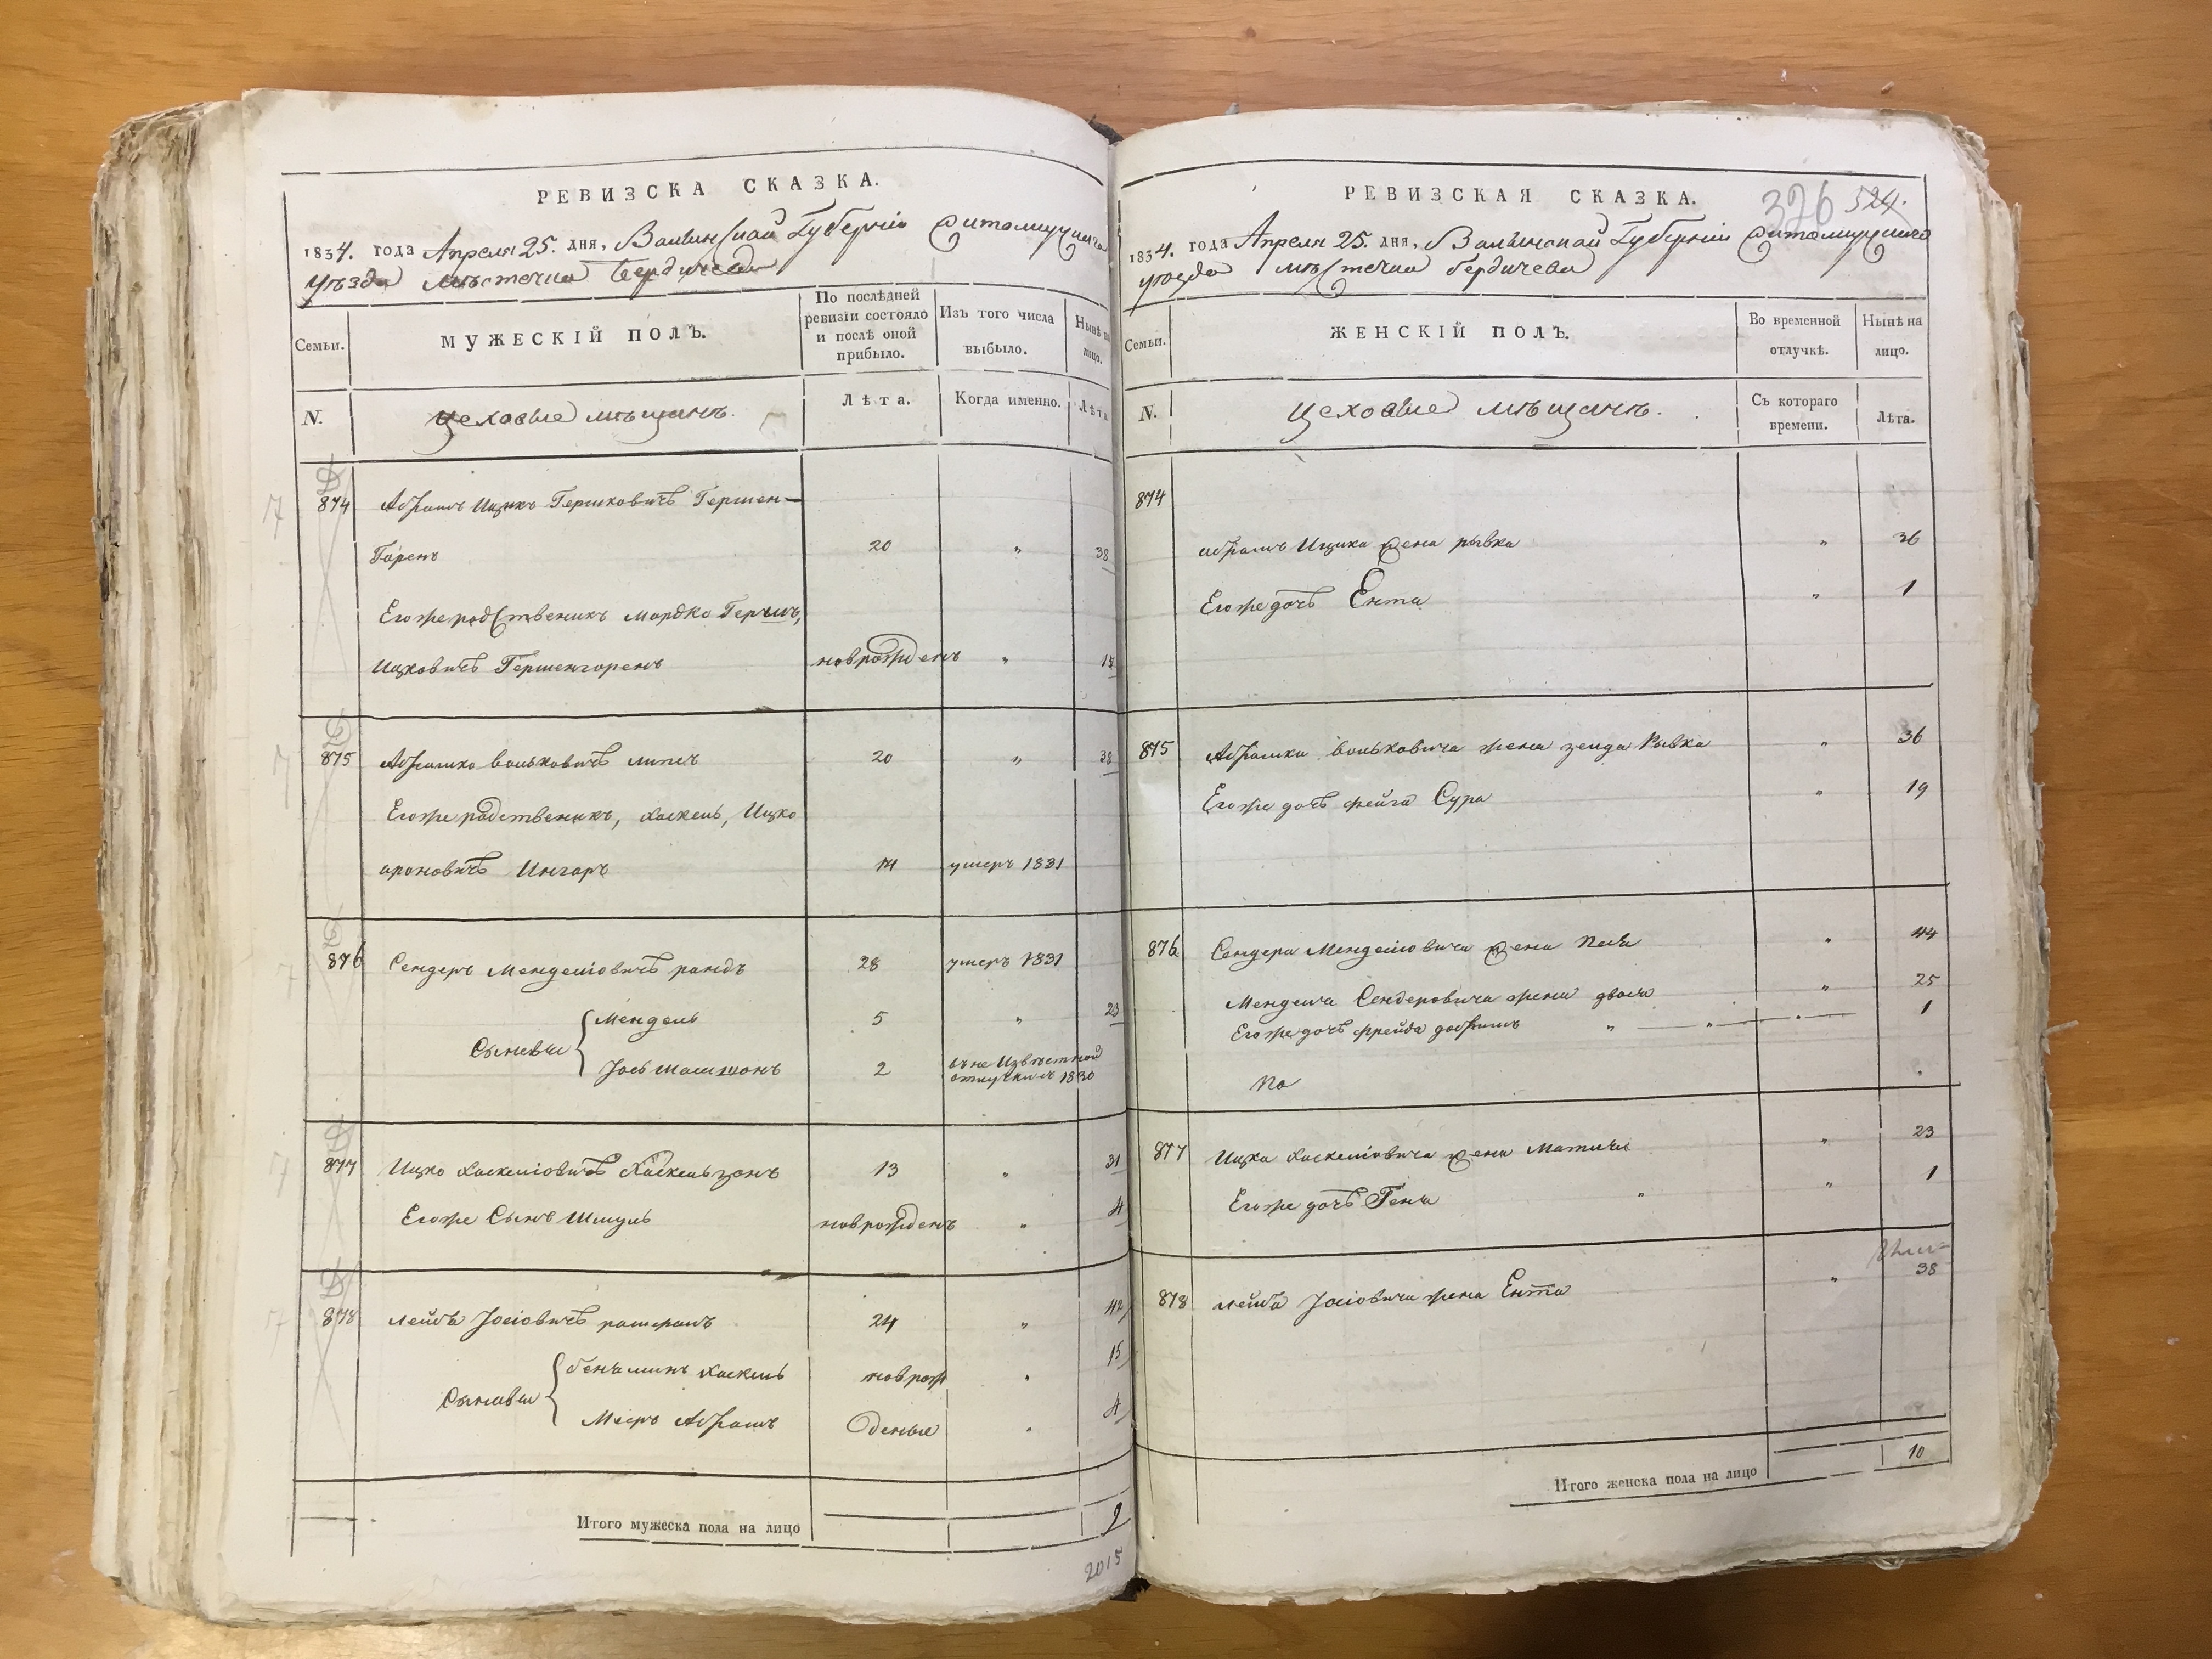 РЕВИЗСКА СКАЗКА.
1834. года Апреля 25. дня, Волынской Губерніи Житомирскаго
уѣзда мѣстечка Бердичева
Семьи.
МУЖЕСКІЙ ПОЛЪ.
По послѣдней
ревизіи состояло
и послѣ оной
прибыло.
Изъ того числа
выбыло.
Нынѣ на
лицо.
N.
Цеховые мѣщанъ.
Лѣта.
Когда именно.
Лѣта
874 Абрамъ Ицикъ Гершковичъ Гершен-
Горенъ 20 " 38
Его же родственикъ Мордко Гершъ,
Ицковичъ Гершенгоренъ новорожденъ "
875 Абрамко Волькович 20 " 38
Его же родственикъ, Хаскель, Ицко
ароновичъ Ингеръ умеръ 1831
876 Сендеръ Менделіовичъ рандъ 28 умеръ 1831
Сыновьи { Мендель 5 " 23
Іось 2 въ не Извѣстной
отлучки 1830
877 Ицко Хаскеліовичъ Хаскельзонъ 13 " 31
Его же Сынъ Шмуль новрожденъ " 4
878 лейба Іосіовичъ 24 " 42
Сыновьи { беньаминъ Хаскель новрож " 15
Мееръ Абрамъ деные " 4
Итого мужеска пола на лицо 9
2015
РЕВИЗСКАЯ СКАЗКА. 326 524.
1834. года Апреля 25. дня, Волынской Губерніи Житомирскаго
уѣзда мѣстечка бердичева
Семьи.
ЖЕНСКІЙ ПОЛЪ.
Во временной
отлучкѣ.
Нынѣ на
лицо.
N.
Цеховые мѣщанъ.
Съ котораго
времени.
Лѣта.
874
абрамъ Ицика жена рывка " 36
Его же дочь Ента " 1
875 Абрамка Вольковича жена зелда Рывка " 36
Его же дочь фейга Сура " 19
876 Сендера Менделіовича жена Песя " 44
Менделя Сендеровича жена двося " 25
Его же дочь фрейда добришъ " " " 1
No
877 Ицка Хаскеліовича жена Матля " 23
Его же дочь Геня " " 1
878 лейба Іосіовича жена Ента " 38
Итого женска пола на лицо 10